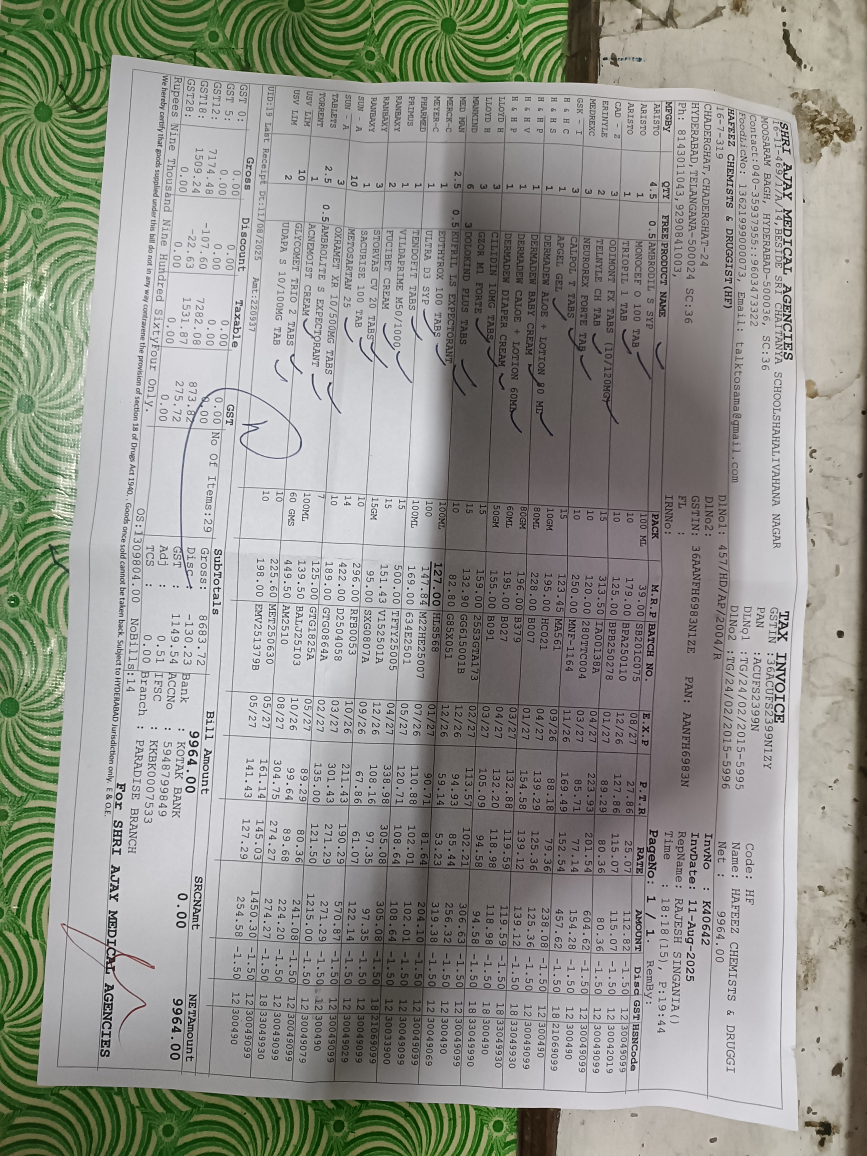 SHRI AJAY MEDICAL AGENCIES
16-11-469/1/A/14,BESIDE SRI CHAITANYA SCHOOLSHAHALIVAHANA NAGAR
MOOSARAM BAGH, HYDERABAD-500036, SC:36
Contact:040-35937955::9603473322
HAFEEZ CHEMISTS & DRUGGIST(HF)
FoodLicNo: 13621999000473, Email: talktosama@gmail.com
16-7-319
CHADERGHAT,CHADERGHAT-24
HYDERABAD,TELANGANA-500024 SC:36
Ph: 8143011043,9290841003,
TAX INVOICE
GSTIN :36ACUFS2399N1ZY
PAN :ACUFS2399N
DlNo1 :TG/24/02/2015-5995
DlNo2 :TG/24/02/2015-5996
DlNo1: 457/HD/AP/2004/R
DlNo2:
GSTIN: 36AANFH6983N1ZE PAN: AANFH6983N
FL :
IRNNo:
Code: HF
Name: HAFEEZ CHEMISTS & DRUGGI
Net : 9964.00
InvNo : K40642
InvDate: 11-Aug-2025
RepName: RAJESH SINGANIA()
Time : 18:18(15), P:19:44
PageNo: 1 / 1. RemBy:
MFGBy QTY FREE PRODUCT NAME PACK M.R.P BATCH NO. E.X.P P.T.R RATE AMOUNT Disc GST HSNCode
ARISTO 4.5 0.5 AMBRODIL S SYP 100 ML 39.00 SB201C075 08/27 27.86 25.07 112.82 -1.50 12 30049099
ARISTO 1 MONOCEF O 100 TAB 10 179.00 BPA250110 12/26 127.86 115.07 115.07 -1.50 12 30042019
ARISTO 1 TRIOPIL 1 TAB 10 125.00 BPB250278 01/27 89.29 80.36 80.36 -1.50 12 30049099
CAD - Z 3 ODIMONT FX TABS (10/120MG) 10 313.50 IA00138A 04/27 223.93 201.54 604.62 -1.50 12 30049099
ERINYLE 2 TELNYLE CH TAB 10 120.00 28BTTC004 03/27 85.71 77.14 154.28 -1.50 12 300490
MEDREXC 3 NEUROREX FORTE TAB 10 250.00 MNF-1164 11/26 169.49 152.54 457.62 -1.50 18 21069099
GSK - I 3 CALPOL T TABS 15 123.45 MA561 09/26 88.18 79.36 238.08 -1.50 12 300490
H & H C 1 APGEL GEL 10GM 195.00 HC021 04/27 139.29 125.36 125.36 -1.50 12 30049099
H & H S 1 DERMADEW ALOE + LOTION 80 ML 80ML 228.00 B007 01/27 154.58 139.12 139.12 -1.50 18 33049930
H & H P 1 DERMADEW BABY CREAM 80GM 196.00 B379 03/27 132.88 119.59 119.59 -1.50 18 33049930
H & H V 1 DERMADEW CALOE + LOTION 60ML 60ML 195.00 B027 04/27 132.20 118.98 118.98 -1.50 18 300490
H & H P 1 DERMADEW DIAPER CREAM 50GM 155.00 B091 03/27 105.09 94.58 94.58 -1.50 18 33049990
LLOYD H 3 CILIDIN 10MG TABS 15 159.00 2SS3GTA173 12/26 113.57 102.21 306.63 -1.50 12 30049099
LLOYD H 3 GEOR M1 FORTE 15 132.90 GG613501B 12/26 94.93 85.44 256.32 -1.50 12 300490
MANKIND 6 DOLOKIND PLUS TABS 10 82.80 G8AX051 12/26 59.14 53.23 319.38 -1.50 12 30049069
MED MAN 2.5 0.5 KUFRIL LS EXPECTORANT 100ML 127.00 HLS568 01/27 90.71 81.64 204.10 -1.50 12
MERCK-C 1 EUTHYROX 100 TABS 100 147.84 M22HE25007 07/26 110.88 102.01 102.01 -1.50 12 30049099
MEYER-C 1 ULTRA D3 SYP 100ML 169.00 634E2501 05/27 120.71 108.64 108.64 -1.50 12 30033900
PHARMED 1 TENDOFIT TABS 15 500.00 TFTY25005 04/27 338.98 305.08 305.08 -1.50 18 21069099
PRIMUS 1 VILDAPRIME M50/1000 15 151.43 V152501A 12/26 108.16 97.35 97.35 -1.50 12 30049099
RANBAXY 2 FUCIBET CREAM 15GM 95.00 SXG0807A 09/26 67.86 61.07 122.14 -1.50 12 30049029
RANBAXY 3 STORVAS CV 20 TABS 10 296.00 RFB0053 10/26 211.43 190.29 570.87 -1.50 12 30049099
RANBAXY 1 SACURISE 100 TAB 14 422.00 D2504058 03/27 301.43 271.29 271.29 -1.50 12 300490
SUN - A 10 METOSARTAN 25 10 189.00 GTG0864A 02/27 135.00 121.50 1215.00 -1.50 12 30049079
SUN - A 3 OXRAMET XR 10/500MG TABS 7 125.00 GTG1825A 05/27 89.29 80.36 241.08 -1.50 12 30049099
TABLETS 2.5 0.5 AMBROLITE S EXPECTORANT 100ML 139.50 BALJ25I03 10/26 99.64 89.68 224.20 -1.50 12 30049099
TORRENT 1 ACNEMOIST CREAM 60 GMS 449.50 AM2510 08/27 304.75 274.27 274.27 -1.50 18 33049930
USV LIM 10 GLYCOMET TRIO 2 TABS 10 225.60 MET250630 05/27 161.14 145.03 1450.30 -1.50 12 30049099
USV LIM 2 UDAPA S 10/100MG TAB 10 198.00 EMV251379B 05/27 141.43 127.29 254.58 -1.50 12 300490
UID:19 Last Receipt Dt:11/08/2025 Amt:220937
Gross Discount Taxable GST
GST 0: 0.00 0.00 0.00 0.00
GST 5: 0.00 0.00 0.00 0.00
GST12: 7174.48 -107.60 7282.08 873.82
GST18: 1509.24 -22.63 1531.87 275.72
GST28: 0.00 0.00 0.00 0.00
No Of Items:29
SubTotals
Gross: 8683.72
Disc : -130.23
GST : 1149.54
Adj : 0.51
TCS : 0.00
Bill Amount
9964.00
Bank : KOTAK BANK
ACCNo : 5948799849
IFSC : KKBK0007533
Branch : PARADISE BRANCH
SRCNAmt
0.00
NETAmount
9964.00
Rupees Nine Thousand Nine Hundred SixtyFour Only.
OS:1309804.00 NoBills:14
For SHRI AJAY MEDICAL AGENCIES
We hereby certify that goods supplied under this bill do not in any way contravene the provision of section 18 of Drugs Act 1940. Goods once sold cannot be taken back. Subject to HYDERABAD Jurisdiction only. E & O.E.